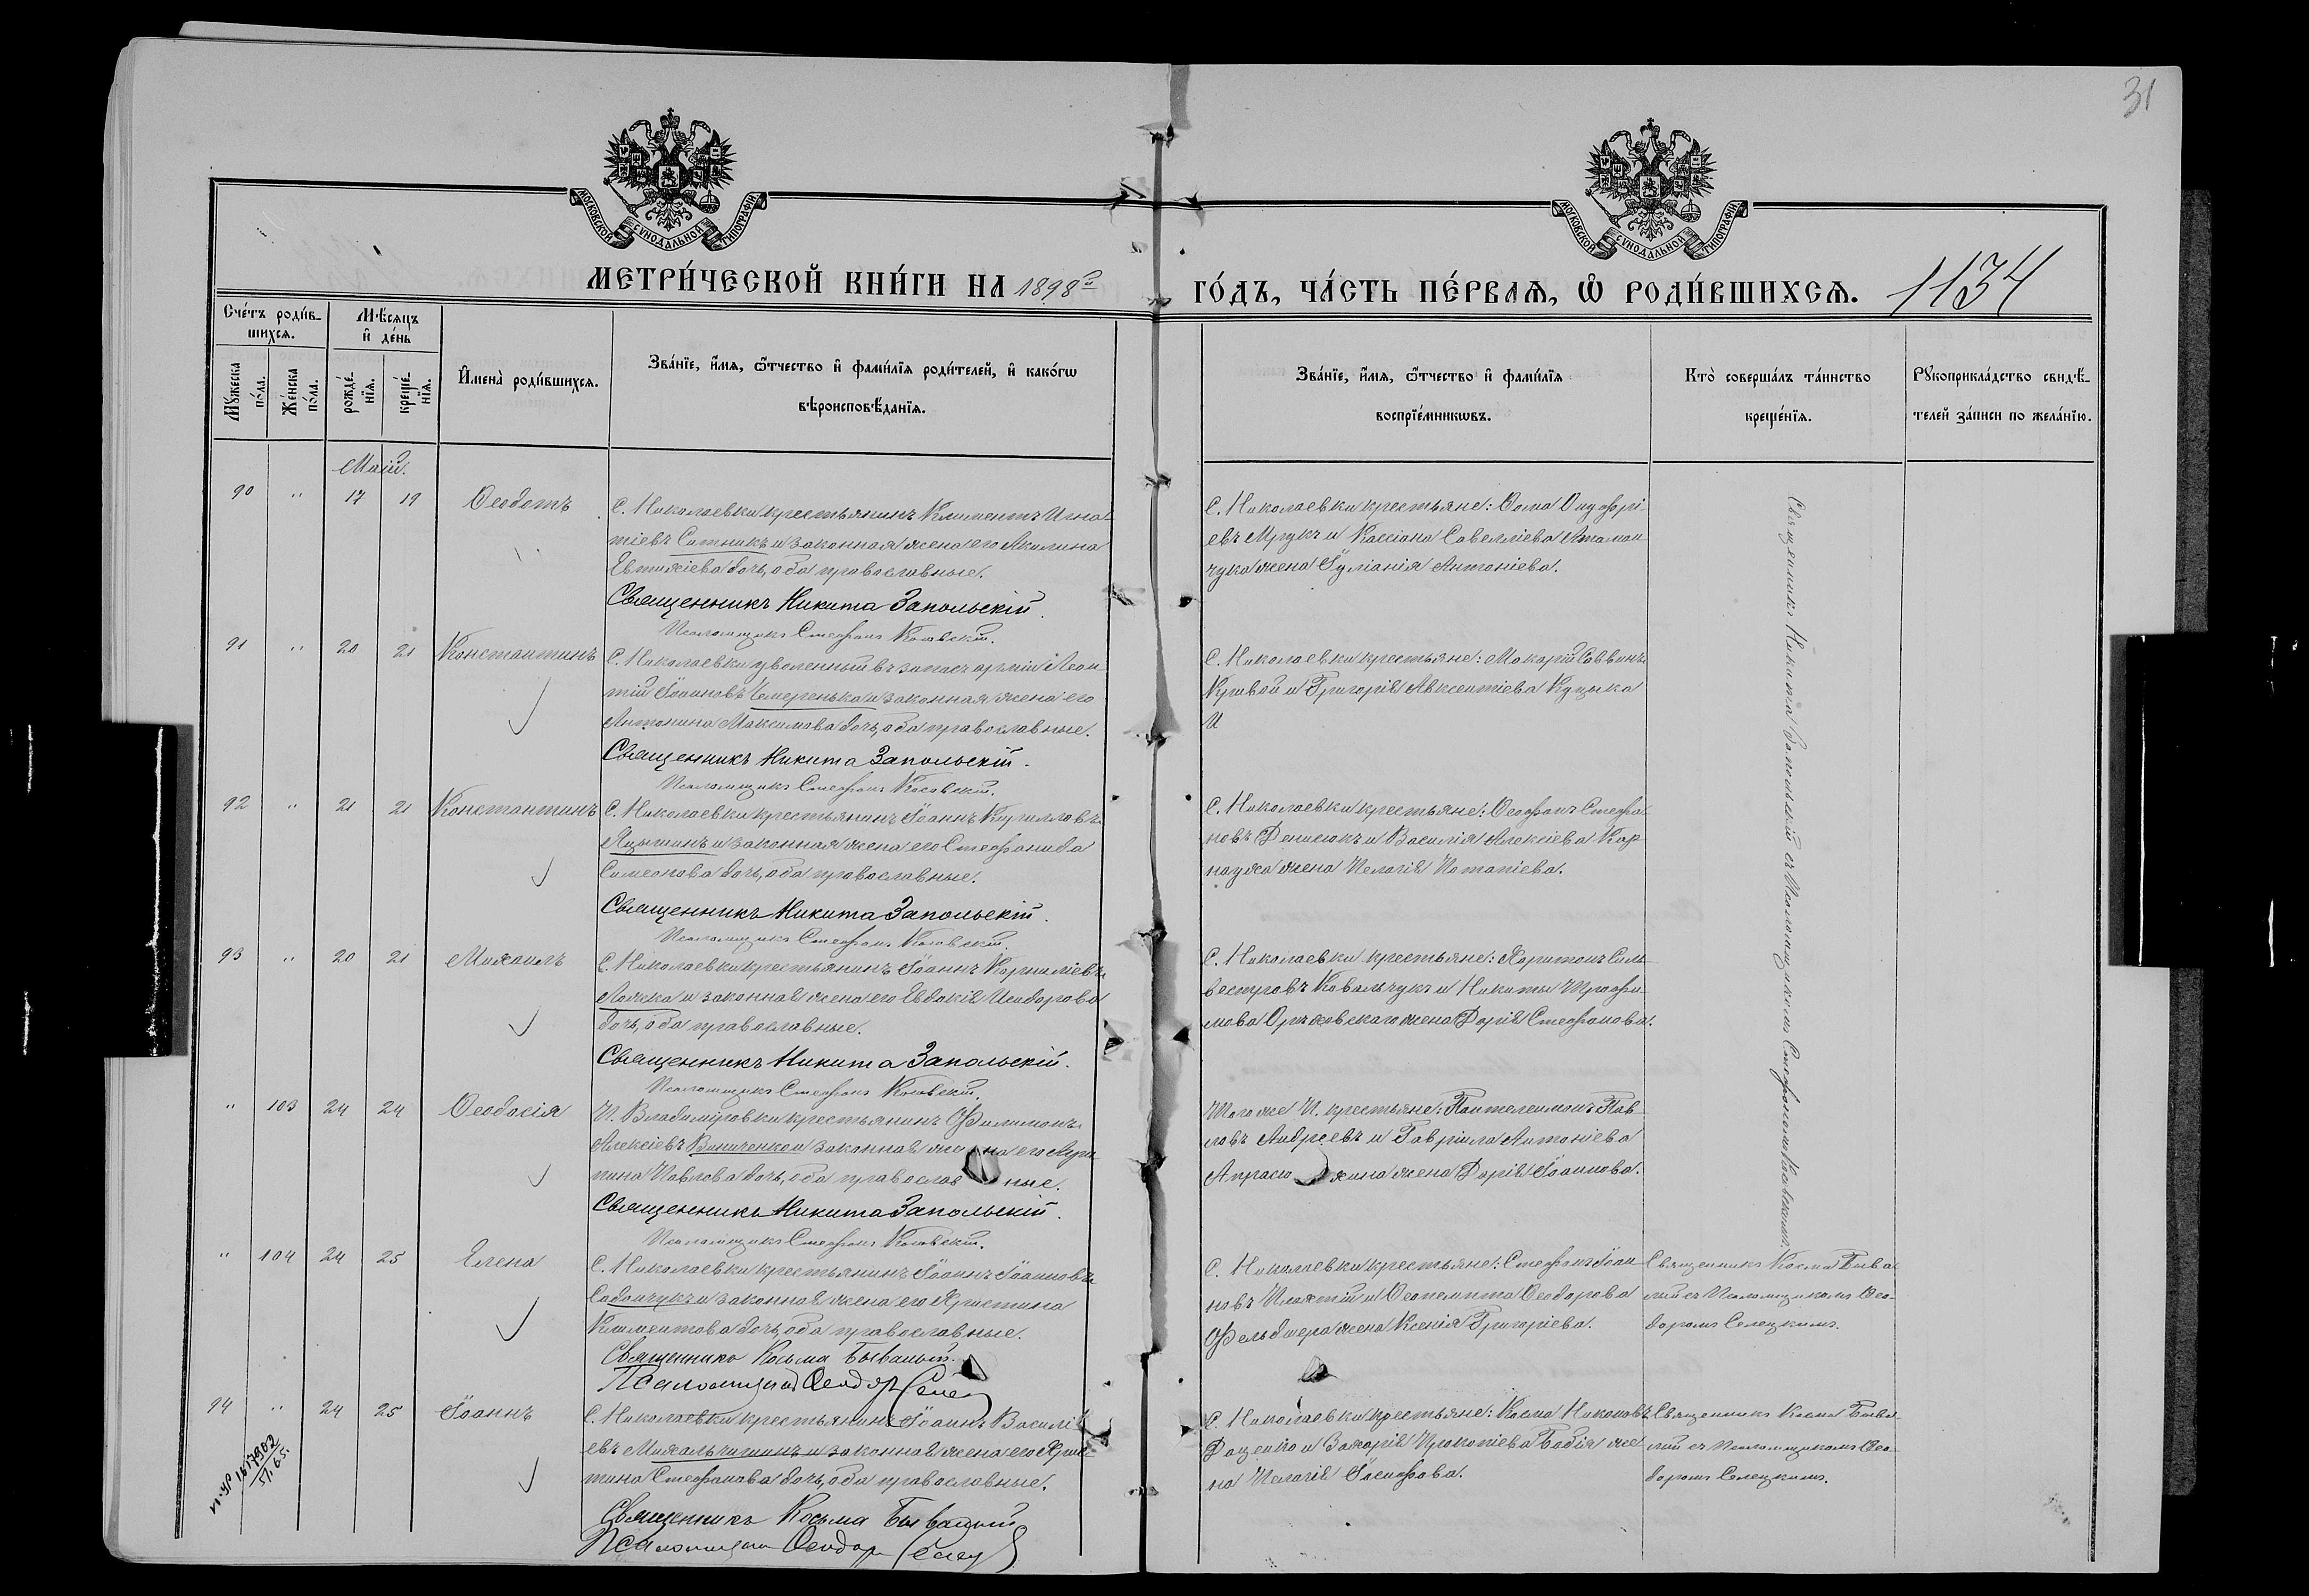 31
МОСКОВСКОЙ СУНОДАЛЬНОЙ ТИПОГРАФІИ
МОСКОВСКОЙ СУНОДАЛЬНОЙ ТИПОГРАФІИ
МЕТРИ́ЧЕСКОЙ КНИ́ГИ НА 1898й
ГО́ДЪ, ЧА́СТЬ ПЕ́РВАѦ, Ѡ РОДИ́ВШИХСѦ. 1134
Сче́тъ роди́в-
шихсѧ.
Мꙋ́жеска по́ла.
Же́нска по́ла.
Мѣсѧцъ
и де́нь
рожде́-
нїѧ.
креще́-
нїѧ.
И҆мена̀ роди́вшихсѧ.
Зва́нїе, и҆́мѧ, ѻ҆́тчество и҆ фами́лїѧ роди́телей, и҆ како́гѡ
вѣроисповѣ́данїѧ.
Зва́нїе, и҆́мѧ, ѻ҆́тчество и҆ фами́лїѧ
воспрїе́мникѡвъ.
Кто̀ соверша́лъ та́инство
креще́нїѧ.
Рꙋкоприкла́дство свидѣ́-
телей за́писи по жела́нїю.
Маій.
90 " 17 19 Ѳеодотъ
С. Николаевки крестьянинъ Климентъ Игна-
тіевъ Ситникъ и законная жена его Акилина
Евтихіева дочь, оба православные.
Священникъ Никита Запольскій.
Псаломщикъ Стефанъ Косовскій.
С. Николаевки крестьяне: Ѳома Онуфрі-
евъ Мрукъ и Кассіана Савелліева Атаман-
чука жена Іуліанія Антоніева.
Священникъ Никита Запольскій съ Псаломщикомъ Стефаномъ Косовскимъ.
91 " 20 21 Константинъ
С. Николаевки уволенный въ запасъ арміи Леон-
тій Іоанновъ Чемеренька и законная жена его
Антонина Максимова дочь, оба православные.
Священникъ Никита Запольскій.
Псаломщикъ Стефанъ Косовскій.
С. Николаевки крестьяне: Макарій Саввинъ
Кривой и Григорія Авксентіева Куцыка
и
92 " 21 21 Константинъ
С. Николаевки крестьянинъ Іоаннъ Кирилловъ
Яцышинъ и законная жена его Стефанида
Симеонова дочь, оба православные.
Священникъ Никита Запольскій.
Псаломщикъ Стефанъ Косовскій.
С. Николаевки крестьяне: Ѳеофанъ Стефа-
новъ Денисюкъ и Василія Алексіева Кар-
науха жена Пелагія Потапіева.
93 " 20 21 Михаилъ
С. Николаевки крестьянинъ Іоаннъ Корниліевъ
Ложка и законная жена его Евдокія Исидорова
дочь, оба православные.
Священникъ Никита Запольскій.
Псаломщикъ Стефанъ Косовскій.
С. Николаевки крестьяне: Харитонъ Силь-
вестровъ Ковальчукъ и Никиты Трофи-
мова Орѣховскаго жена Дарія Стефанова.
" 103 24 24 Ѳеодосія
П. Владиміровки крестьянинъ Филимонъ
Алексіевъ Виниченко и законная жена его Агри-
пина Павлова дочь, оба православные.
Священникъ Никита Запольскій.
Псаломщикъ Стефанъ Косовскій.
Того же П. крестьяне: Пантелеимонъ Пав-
ловъ Андреевъ и Гавріила Антоніева
жена Дарія Іоаннова.
" 104 24 25 Елена
С. Николаевки крестьянинъ Іоаннъ Іоанновъ
Садончукъ и законная жена его Христина
Климентова дочь, оба православные.
Священникъ Косьма Бывалый.
Псаломщикъ Ѳеодоръ
С. Николаевки крестьяне: Стефанъ Іоан-
новъ Плахтій и Ѳеопемпта Ѳеодорова
Фельдшера жена Ксенія Григоріева.
Священникъ Косма Быва-
лый съ Псаломщикомъ Ѳео-
доромъ Селецкимъ.
94 " 24 25 Іоаннъ
С. Николаевки крестьянинъ Іоаннъ Василі-
евъ Михальчишинъ и законная жена его Хрис-
тина Стефанова дочь, оба православные.
Священникъ Косьма Бывалый
Псаломщикъ Ѳеодоръ
С. Николаевки крестьяне: Косма Никоновъ
Доценко и Захарія Прокопіева Бабія же-
на Пелагія Іосифова.
Священникъ Косма Быва-
лый съ Псаломщикомъ Ѳео-
доромъ Селецкимъ.
1617902
51.65.